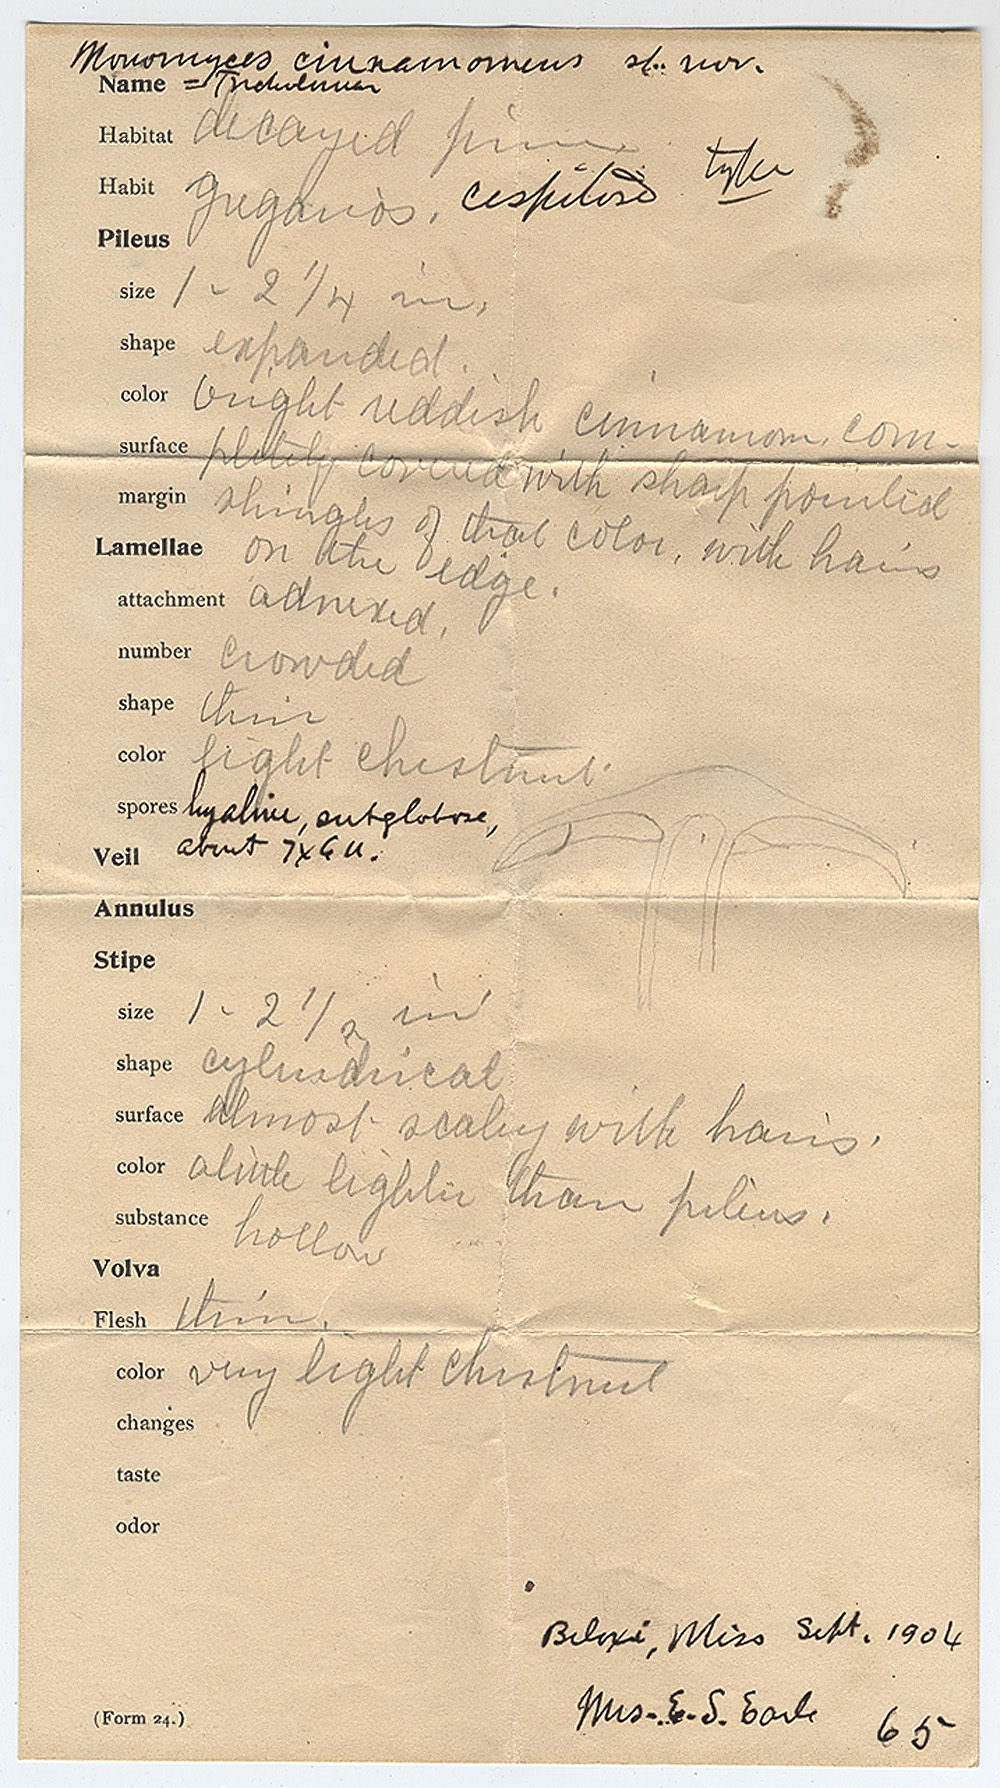 Monomyces cinnamomeus sp. nov.
Name = Tricholoma
Habitat decayed pine
Habit gregarios. cespitose type
Pileus
size 1 - 2 1/4 in.
shape expanded.
color bright reddish cinnamom. com-
surface pletely covered with sharp pointed
margin shingles of that color, with hairs
Lamellae on the edge.
attachment adnexed.
number crowded
shape thin
color light chestnut.
spores hyaline, subglobose,
Veil about 7x6 u.
Annulus
Stipe
size 1 - 2 1/2 in
shape cylindrical
surface almost scaley with hairs.
color alittle lighter than pileus.
substance hollow
Volva
Flesh thin.
color very light chestnut
changes
taste
odor
Biloxi, Miss Sept. 1904
(Form 24.) Mrs. E. S. Earle 65